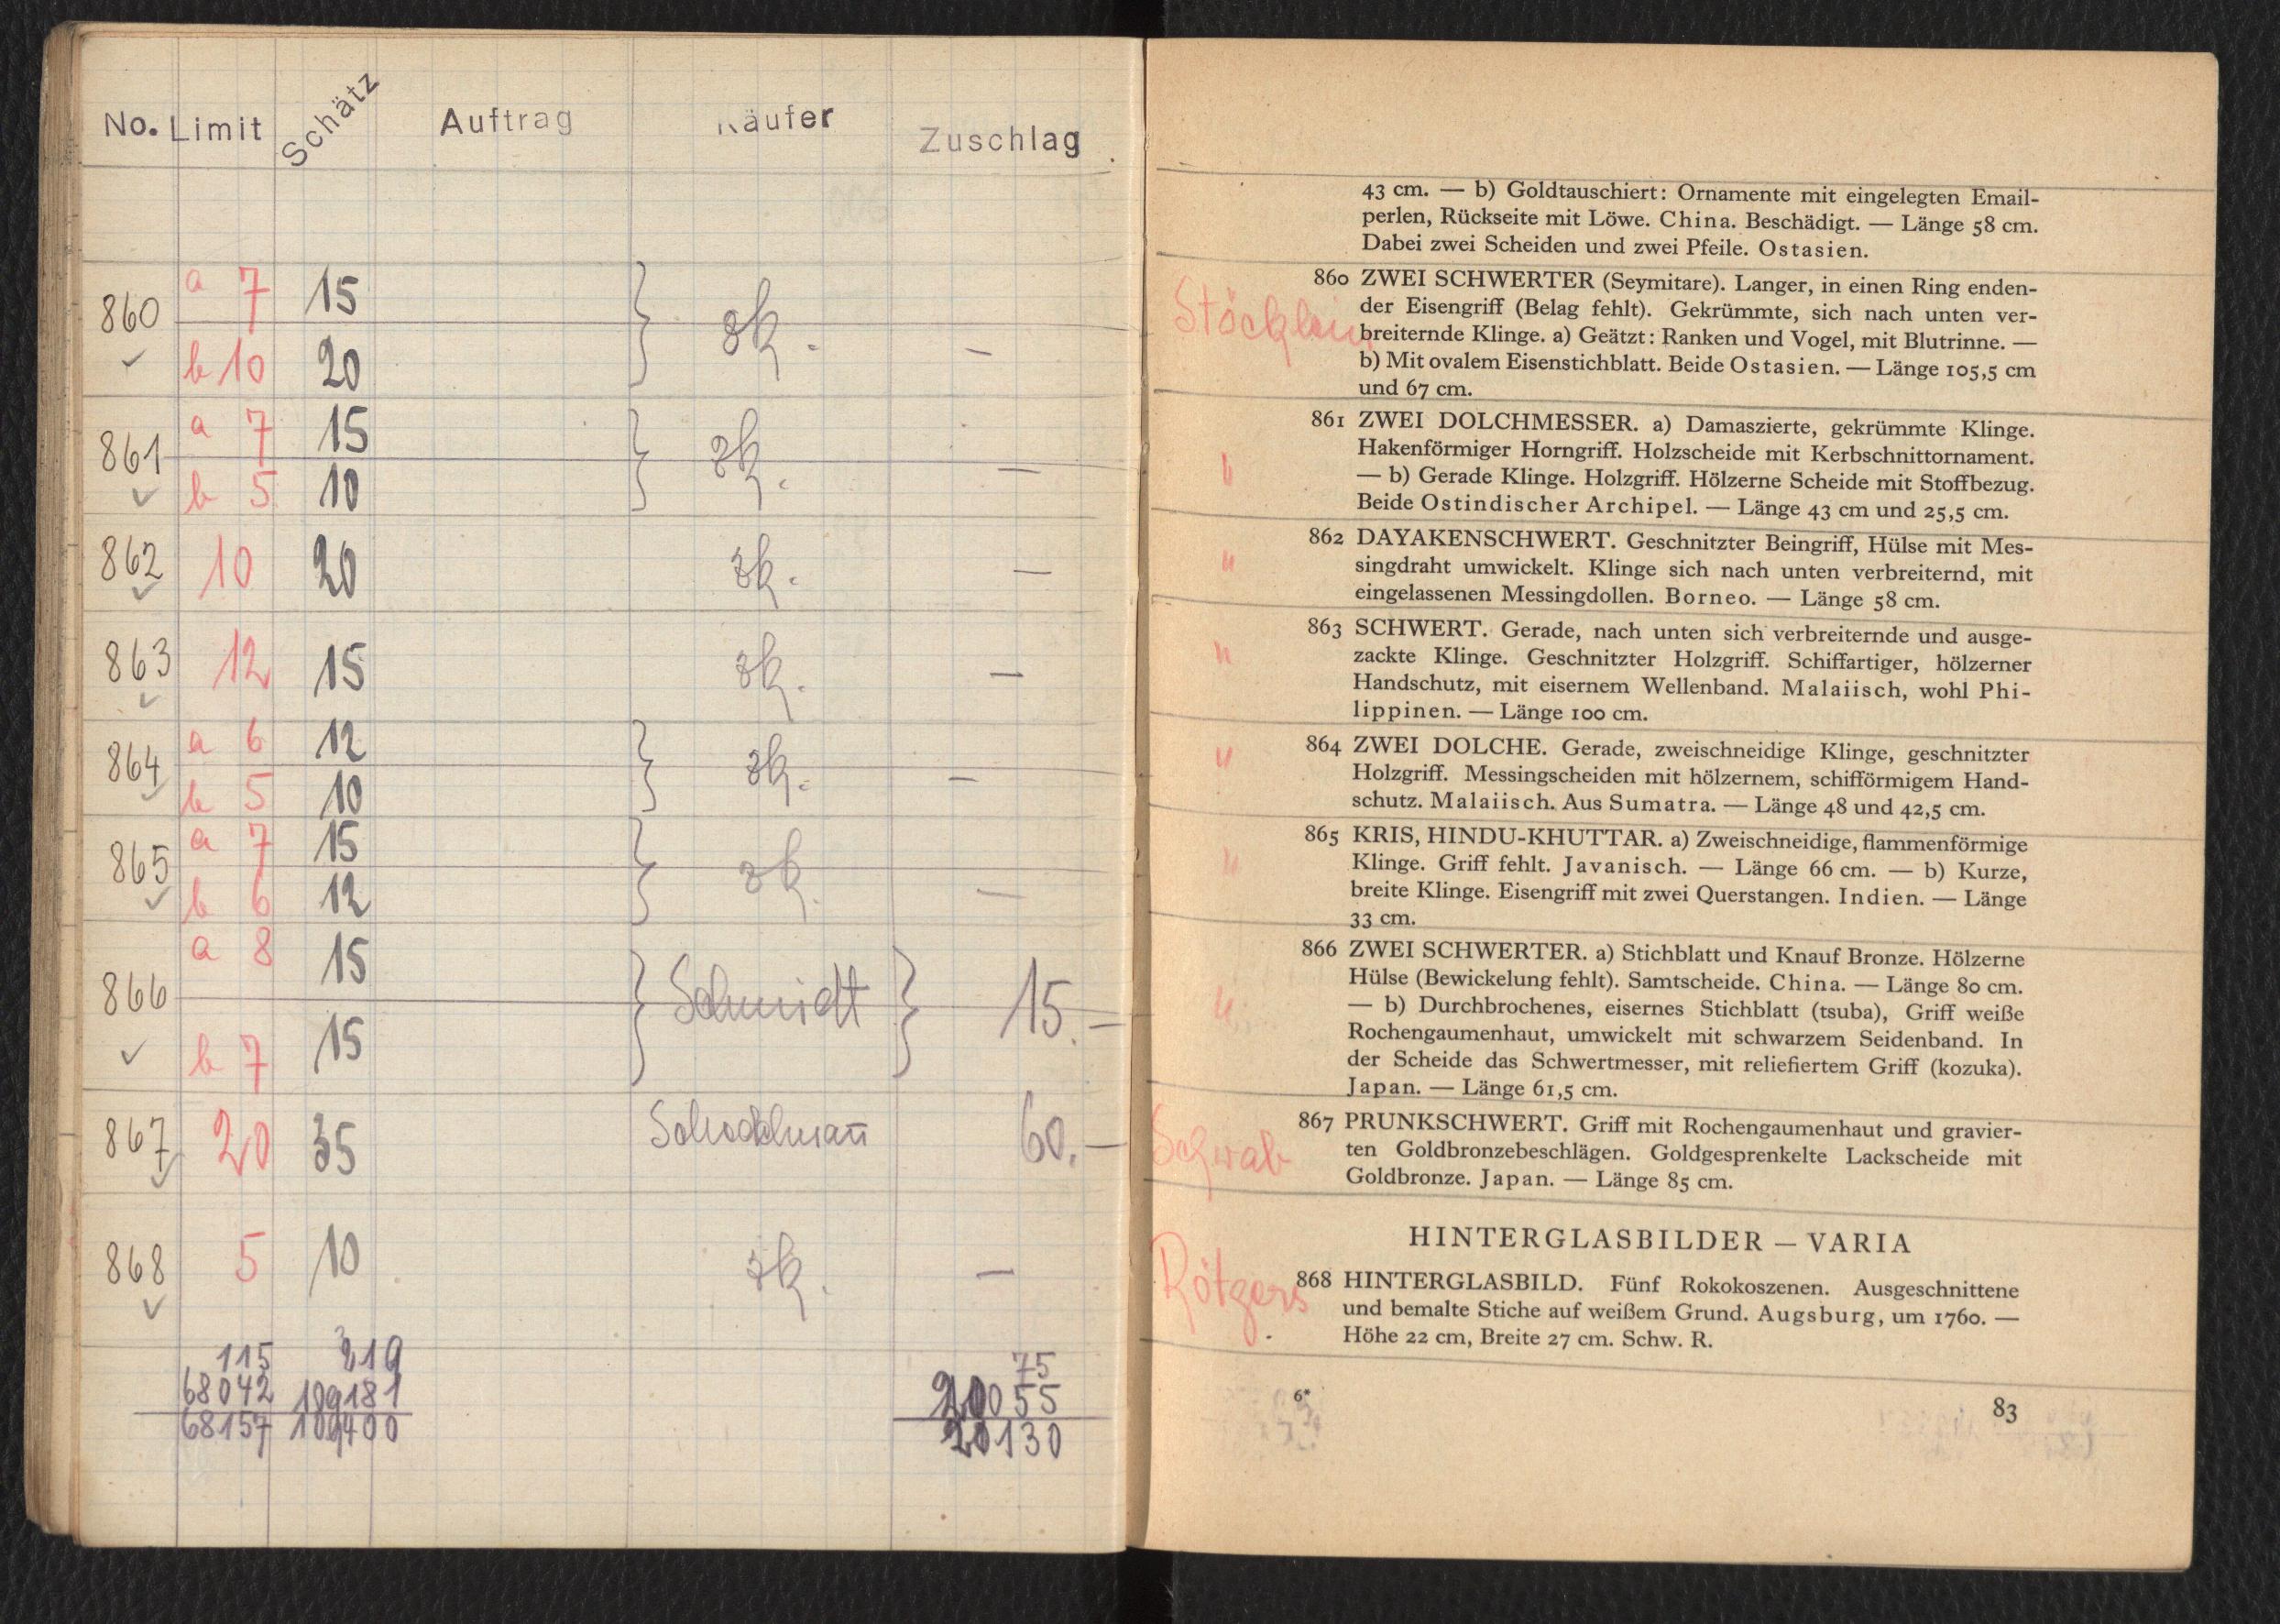 No. Limit Schätz Auftrag Käufer Zuschlag
860 a 7 15 zk. –
b 10 20
861 a 7 15 zk. –
b 5 10
862 10 20 zk. –
863 12 15 zk. –
864 a 6 12 zk. –
b 5 10
865 a 7 15 zk. –
b 6 12
866 a 8 15 Schmidt 15.–
b 7 15
867 20 35 60.–
868 5 10 zk. –
115 219 75
68042 109181 20055
68157 109400 20130
43 cm. — b) Goldtauschiert: Ornamente mit eingelegten Email-
perlen, Rückseite mit Löwe. China. Beschädigt. — Länge 58 cm.
Dabei zwei Scheiden und zwei Pfeile. Ostasien.
Stöcklein
860 ZWEI SCHWERTER (Seymitare). Langer, in einen Ring enden-
der Eisengriff (Belag fehlt). Gekrümmte, sich nach unten ver-
breiternde Klinge. a) Geätzt: Ranken und Vogel, mit Blutrinne. —
b) Mit ovalem Eisenstichblatt. Beide Ostasien. — Länge 105,5 cm
und 67 cm.
"
861 ZWEI DOLCHMESSER. a) Damaszierte, gekrümmte Klinge.
Hakenförmiger Horngriff. Holzscheide mit Kerbschnittornament.
— b) Gerade Klinge. Holzgriff. Hölzerne Scheide mit Stoffbezug.
Beide Ostindischer Archipel. — Länge 43 cm und 25,5 cm.
"
862 DAYAKENSCHWERT. Geschnitzter Beingriff, Hülse mit Mes-
singdraht umwickelt. Klinge sich nach unten verbreiternd, mit
eingelassenen Messingdollen. Borneo. — Länge 58 cm.
"
863 SCHWERT. Gerade, nach unten sich verbreiternde und ausge-
zackte Klinge. Geschnitzter Holzgriff. Schiffartiger, hölzerner
Handschutz, mit eisernem Wellenband. Malaiisch, wohl Phi-
lippinen. — Länge 100 cm.
"
864 ZWEI DOLCHE. Gerade, zweischneidige Klinge, geschnitzter
Holzgriff. Messingscheiden mit hölzernem, schifförmigem Hand-
schutz. Malaiisch. Aus Sumatra. — Länge 48 und 42,5 cm.
"
865 KRIS, HINDU-KHUTTAR. a) Zweischneidige, flammenförmige
Klinge. Griff fehlt. Javanisch. — Länge 66 cm. — b) Kurze,
breite Klinge. Eisengriff mit zwei Querstangen. Indien. — Länge
33 cm.
"
866 ZWEI SCHWERTER. a) Stichblatt und Knauf Bronze. Hölzerne
Hülse (Bewickelung fehlt). Samtscheide. China. — Länge 80 cm.
— b) Durchbrochenes, eisernes Stichblatt (tsuba), Griff weiße
Rochengaumenhaut, umwickelt mit schwarzem Seidenband. In
der Scheide das Schwertmesser, mit reliefiertem Griff (kozuka).
Japan. — Länge 61,5 cm.
Schwab
867 PRUNKSCHWERT. Griff mit Rochengaumenhaut und gravier-
ten Goldbronzebeschlägen. Goldgesprenkelte Lackscheide mit
Goldbronze. Japan. — Länge 85 cm.
HINTERGLASBILDER — VARIA
Rötgers
868 HINTERGLASBILD. Fünf Rokokoszenen. Ausgeschnittene
und bemalte Stiche auf weißem Grund. Augsburg, um 1760. —
Höhe 22 cm, Breite 27 cm. Schw. R.
6*
83